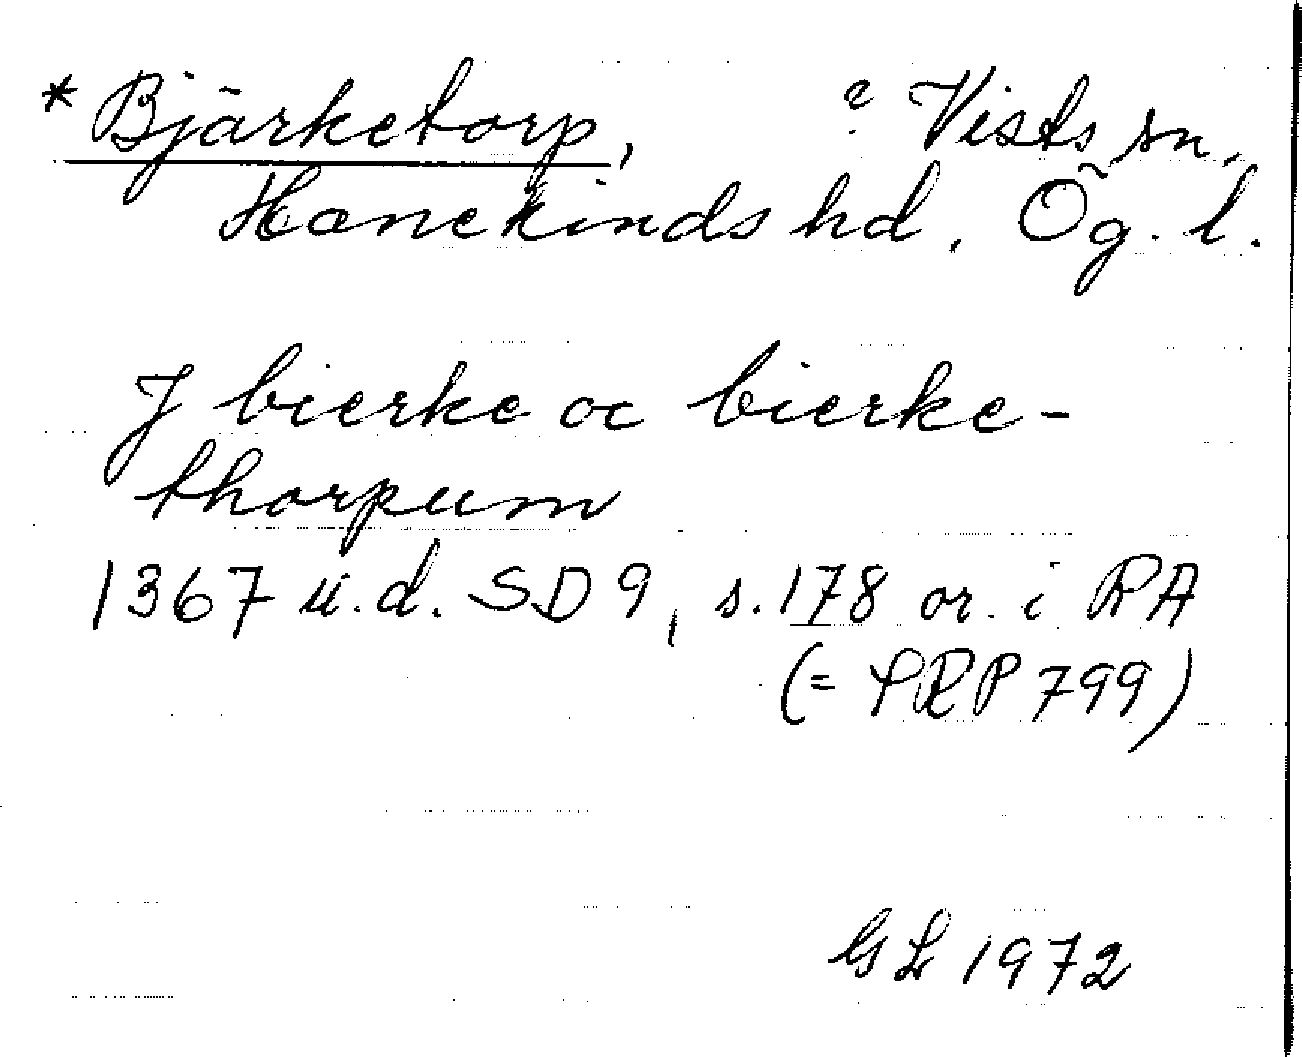 * Bjärketorp, ? Vists sn,
Hanekinds hd. Ög. l.
J bierke oc bierke-
thorpum
1367 u.d. SD 9, s. 178 or. i RA
(= SRP 799)
GL 1972